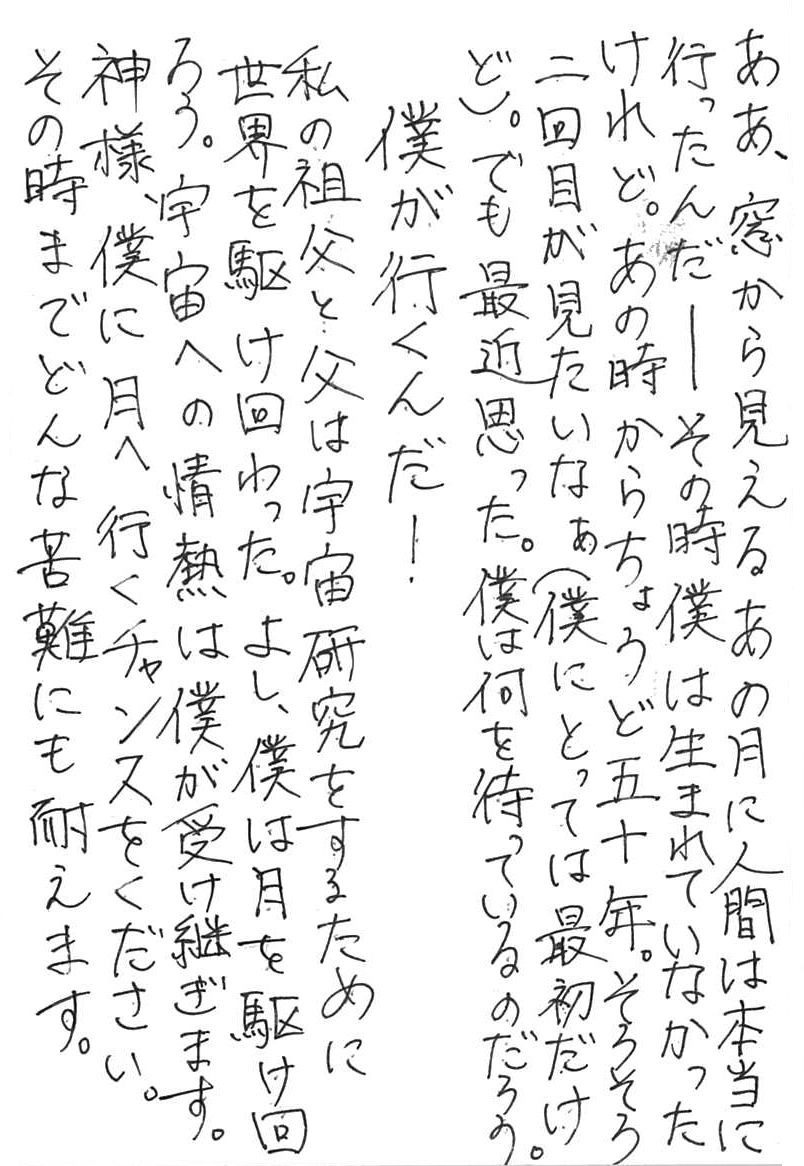 ああ、窓から見えるあの月に人間は本当に
行ったんだ――その時僕は生まれていなかった
けれど。あの時からちょうど五十年。そろそろ
二回目が見たいなぁ（僕にとっては最初だけ
ど）。でも最近思った。僕は何を待っているのだろう。
僕が行くんだー！
私の祖父と父は宇宙研究をするために
世界を駆け回わった。よし、僕は月を駆け回
ろう。宇宙への情熱は僕が受け継ぎます。
神様、僕に月へ行くチャンスをください。
その時までどんな苦難にも耐えます。